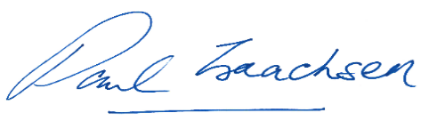 Paul Isaachsen